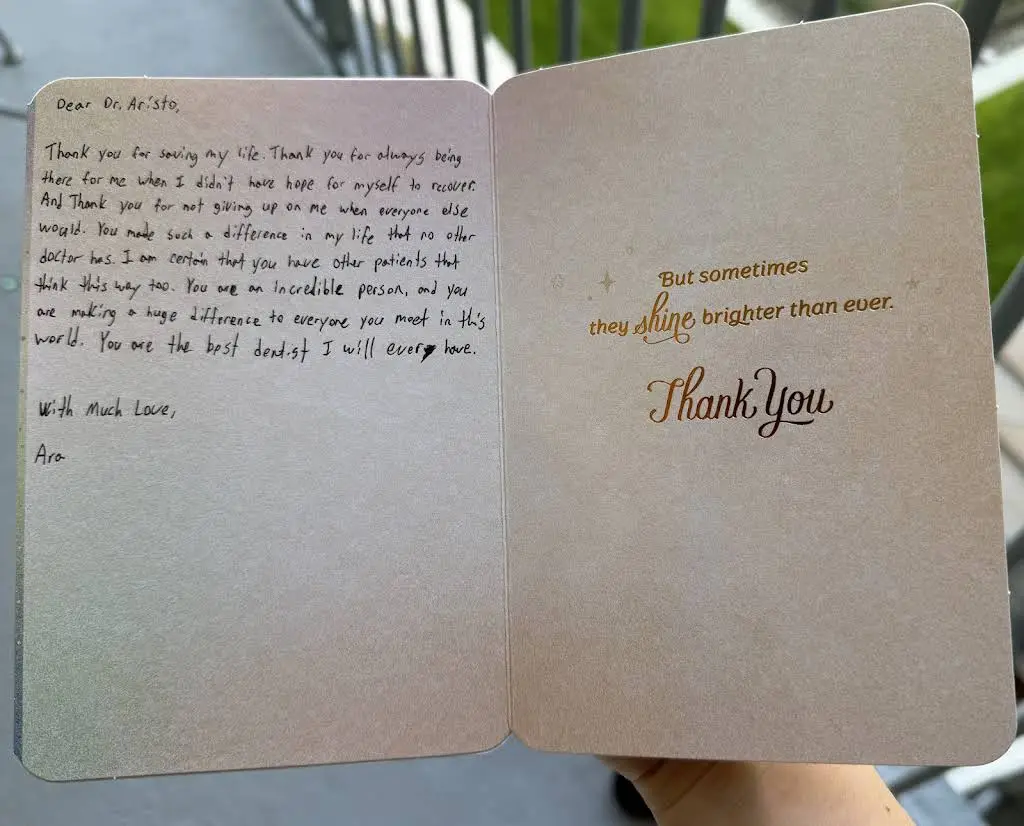 Dear Dr. Aristo,
Thank you for saving my life. Thank you for always being
there for me when I didn't have hope for myself to recover.
And Thank you for not giving up on me when everyone else
would. You made such a difference in my life that no other
doctor has. I am certain that you have other patients that
think this way too. You are an incredible person, and you
are making a huge difference to everyone you meet in this
world. You are the best dentist I will ever have.
With Much Love,
Ara
But sometimes
they shine brighter than ever.
Thank You